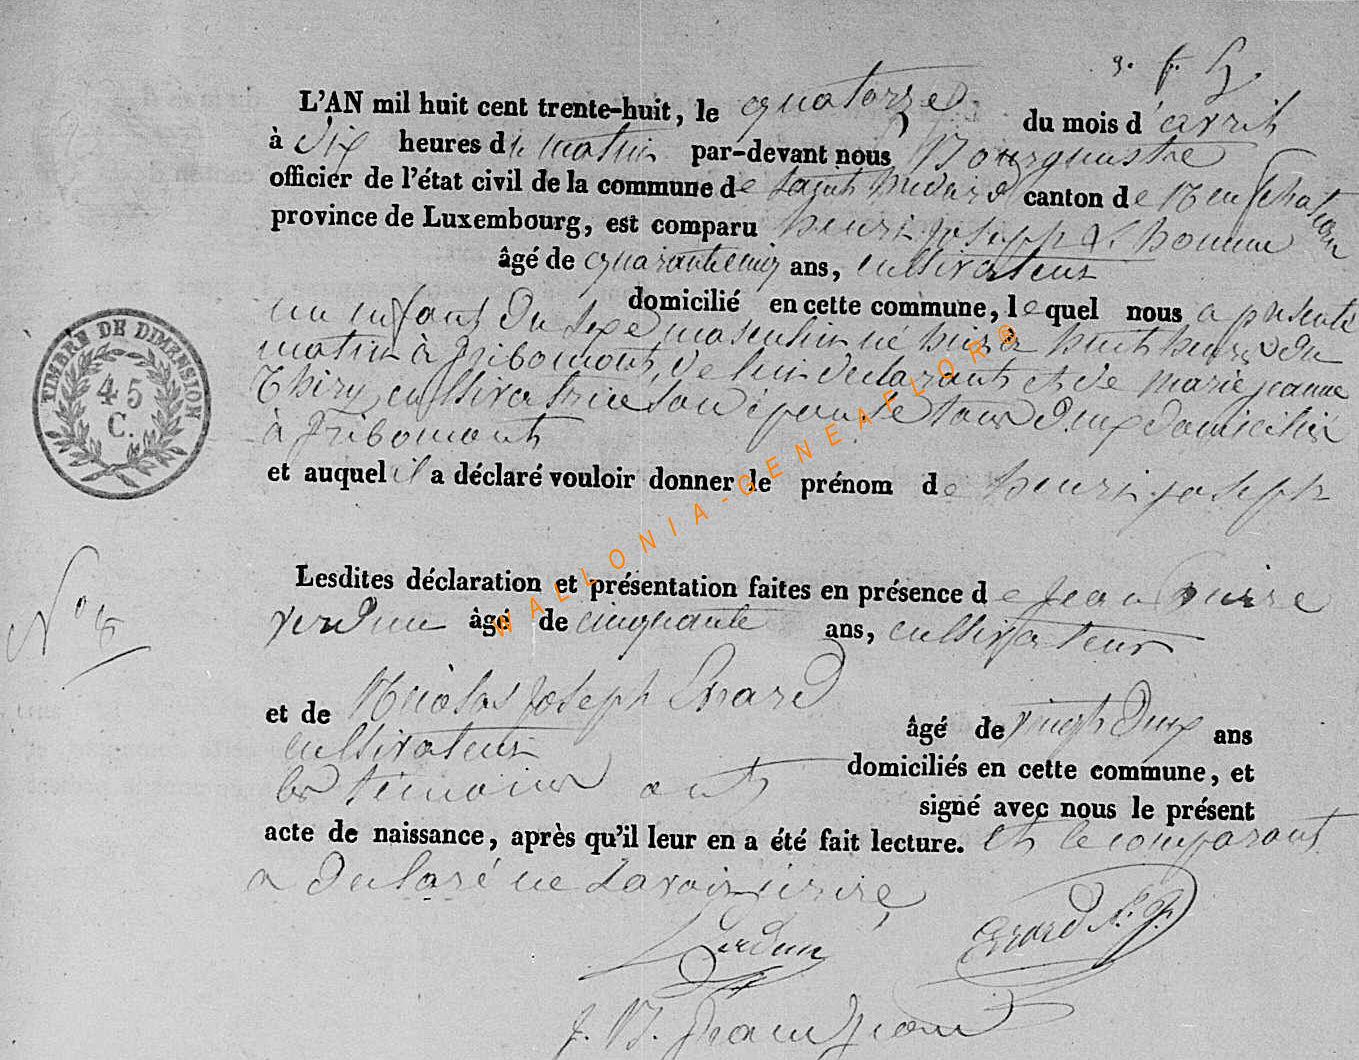 L'AN mil huit cent trente-huit, le quatorze du mois d'avril
à dix heures du matin par-devant nous Bourgmestre
officier de l'état civil de la commune de Saint Médard canton de Neufchateau
province de Luxembourg, est comparu henri joseph
âgé de quarante cinq ans, cultivateur
domicilié en cette commune, lequel nous a présenté
un enfant du sexe masculin né hier à huit heures du
matin à fribomont, de lui déclarant et de marie jeanne
Thiry, cultivatrice son épouse tous deux domicilié
à fribomont
et auquel il a déclaré vouloir donner le prénom de henri joseph
TIMBRE DE DIMENSION
45
C.
Lesdites déclaration et présentation faites en présence de jean
verdun âgé de cinquante ans, cultivateur
N° 5
et de Nicolas joseph Erard âgé de vingt deux ans
cultivateur
domiciliés en cette commune, et
les témoins ont
signé avec nous le présent
acte de naissance, après qu'il leur en a été fait lecture. et le comparant
a déclaré ne savoir écrire
Verdun Erard N. J.
J. B.
WALLONIA-GENEAFLOR®